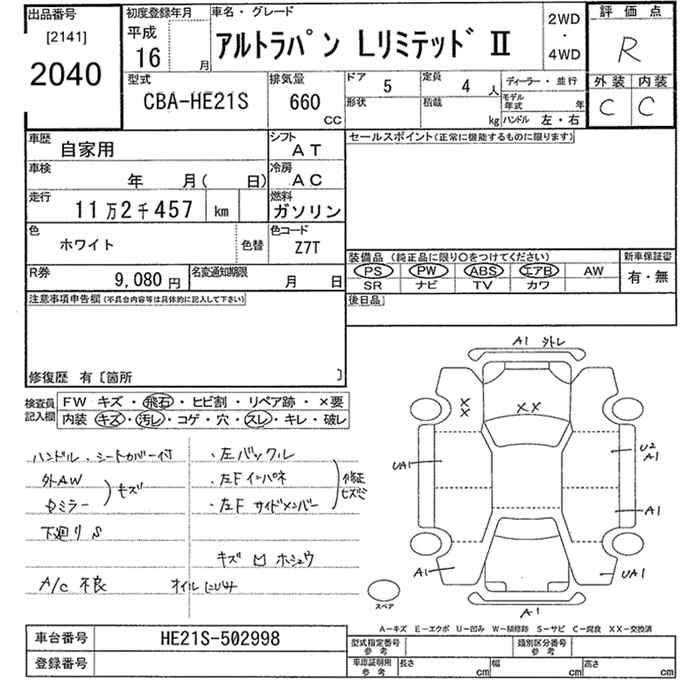 出品番号
[2141]
2040
初度登録年月
平成
16 月
車名・グレード
アルトラパン Lリミテッド Ⅱ
2WD
・
4WD
評価点
R
外装 内装
C C
型式
CBA-HE21S
排気量
660
CC
ドア
5
定員
4 人
形状
積載
kg
ディーラー・並行
モデル年式 年
ハンドル 左・右
車歴
自家用
シフト
AT
車検
年 月( 日)
冷房
AC
走行
11万2千457 km
燃料
ガソリン
色
ホワイト
色替
色コード
Z7T
R券
9,080 円
名変通知期限
月 日
セールスポイント(正常に機能するものに限ります)
装備品(純正品に限り○をつけてください)
PS PW ABS エアB AW
SR ナビ TV カワ
新車保証書
有・無
後日品
注意事項申告欄(不具合内容等は具体的に記入して下さい)
修復歴 有[箇所 ]
検査員記入欄
FW キズ・飛石・ヒビ割・リペア跡・×要
内装 キズ・汚レ・コゲ・穴・スレ・キレ・破レ
ハンドル、シートカバー付
外AW
ミラー
キズ
下廻りS
A/C 不良
・左バックル
・左Fインパネ
・左Fサイドメンバー
修正
キズ 凹 ホシュウ
オイル
A1 外レ
XX
XX
U2
A1
UA1
A1
A1
UA1
A1
スペア
A-キズ E-エクボ U-凹み W-補修跡 S-サビ C-腐食 XX-交換済
車台番号
HE21S-502998
登録番号
型式指定番号
参考
類別区分番号
参考
車庫証明用
参考
長さ cm
幅 cm
高さ cm